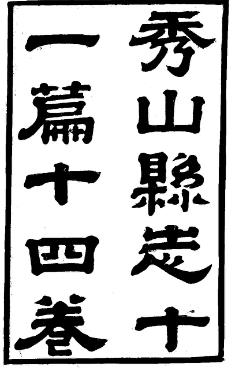 秀山縣志十
一篇十四卷